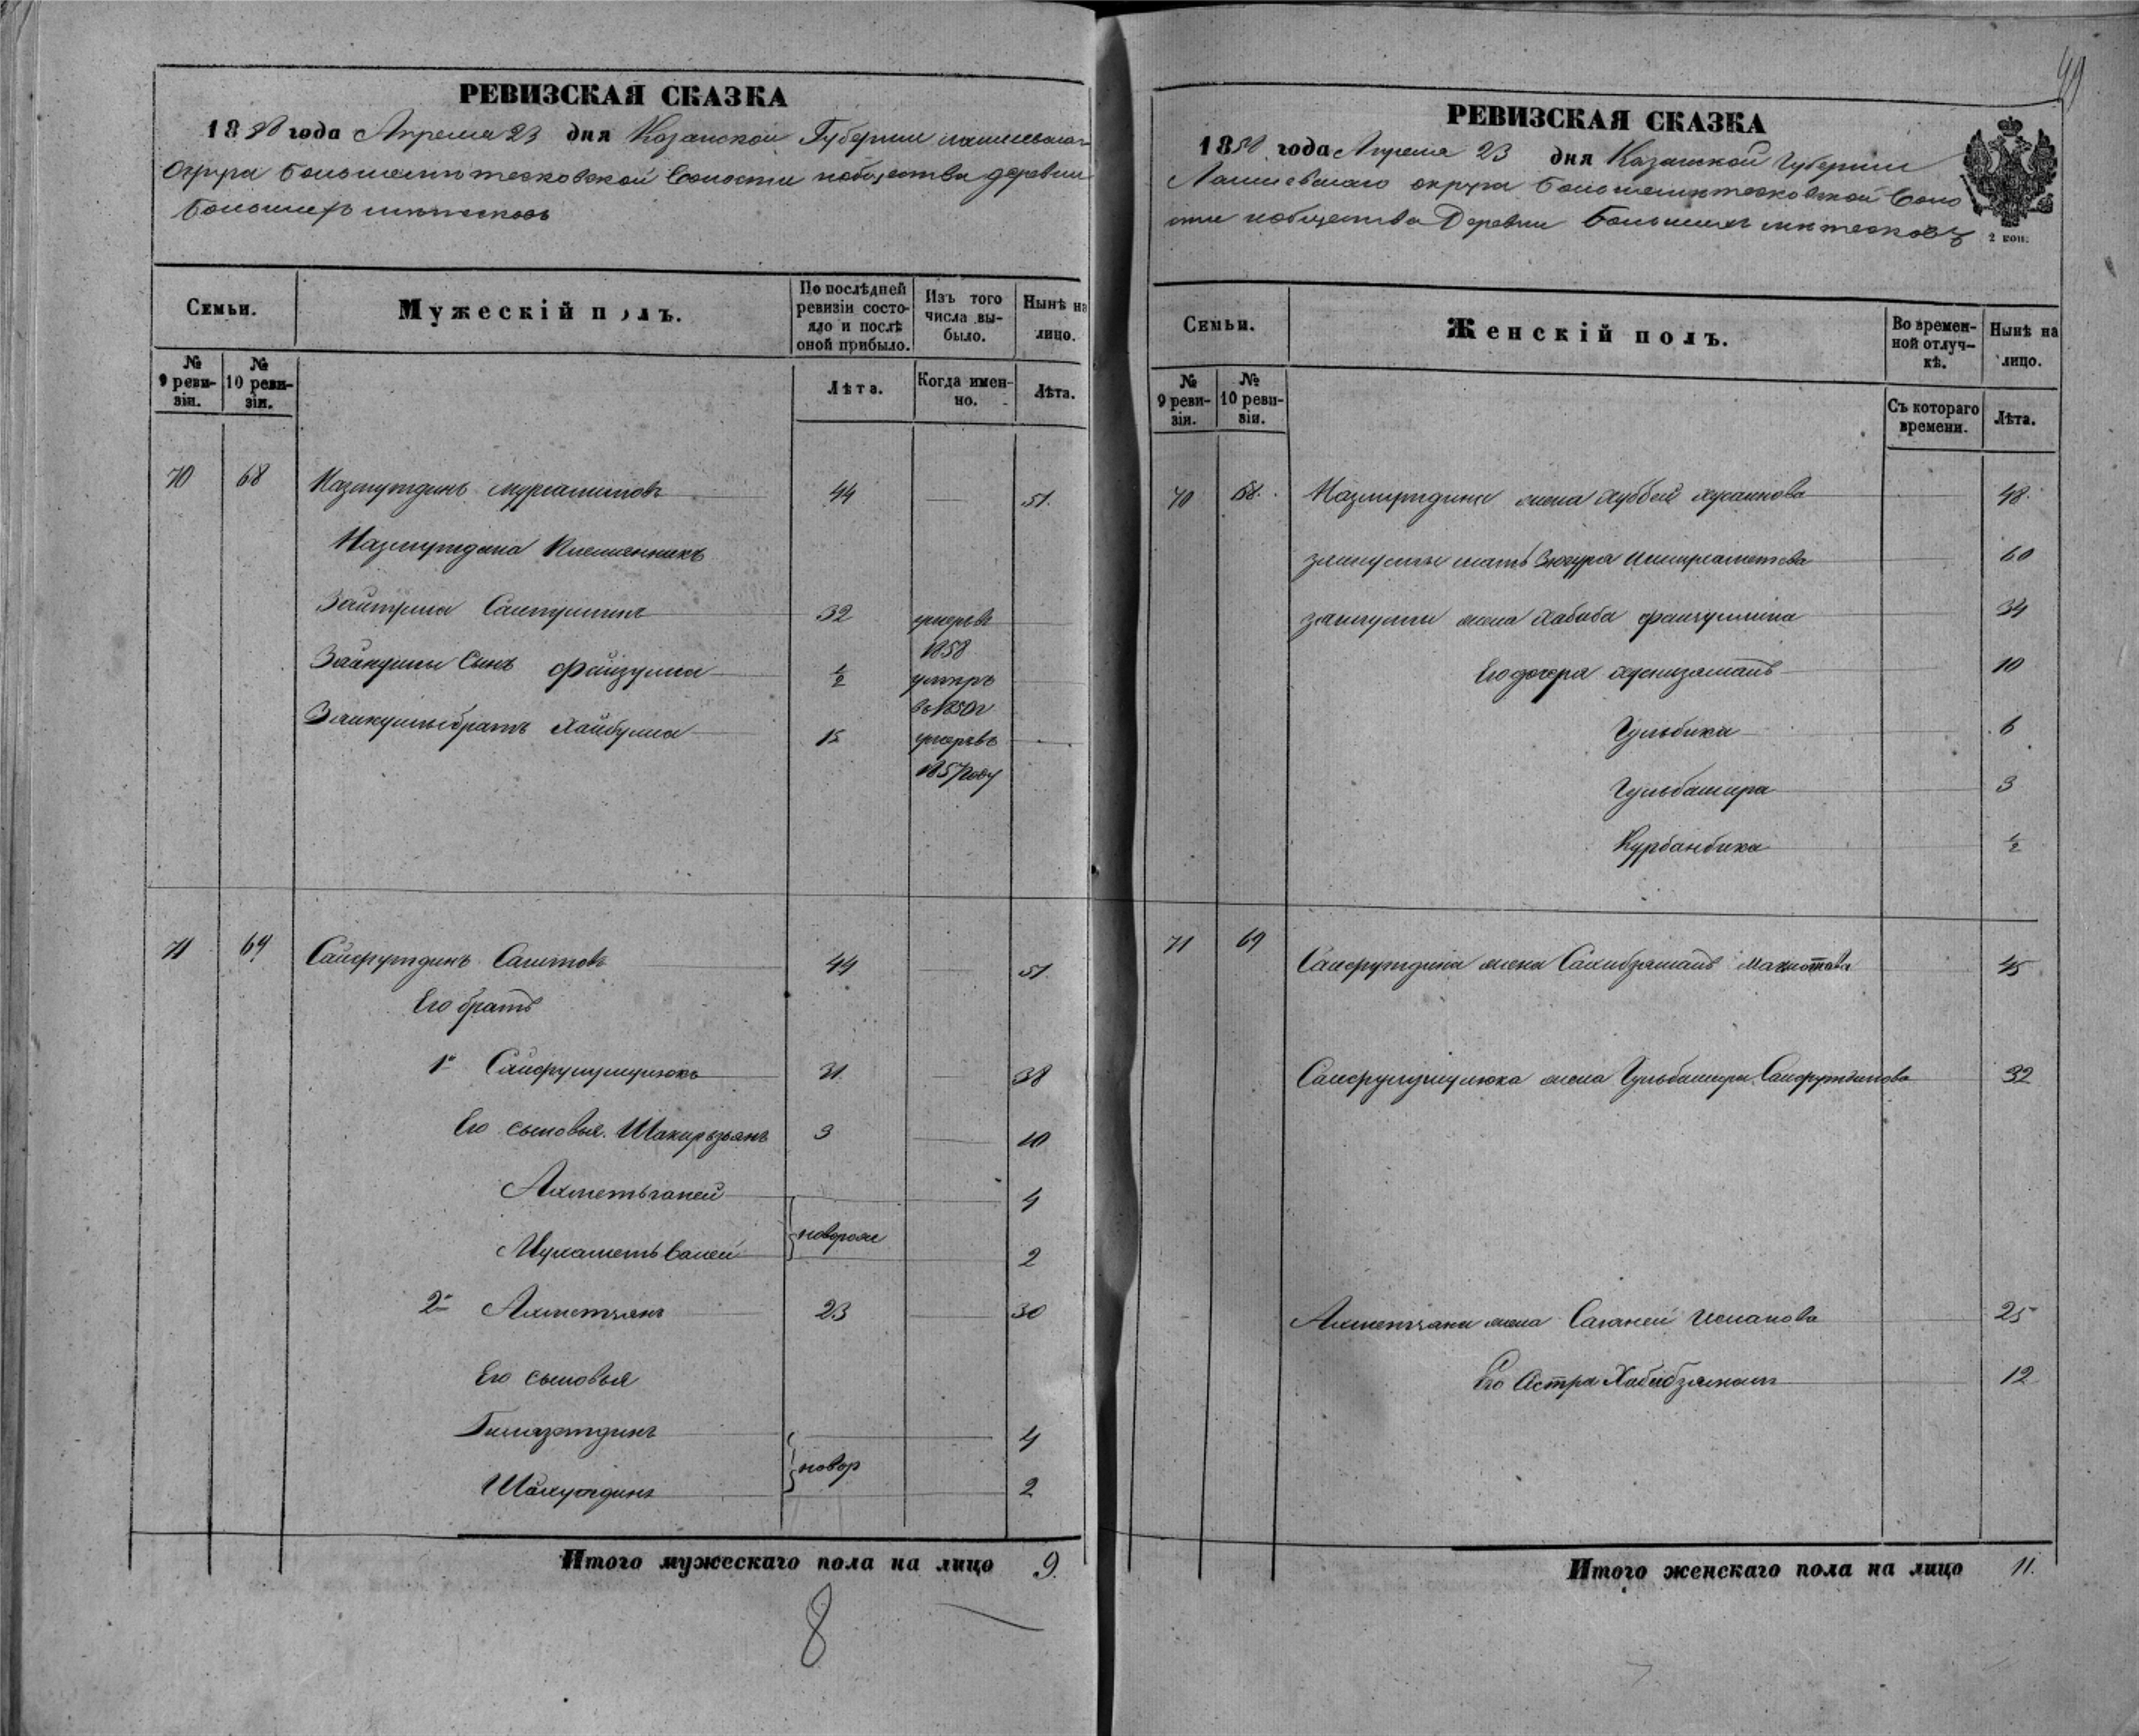 РЕВИЗСКАЯ СКАЗКА
1858 года Апреля 23 дня Казанской Губернии Лаишевскаго
округа Большеметесковской Волости и общества деревни
Большихъ метесковъ
Семьи.
Мужескій полъ.
По послѣдней ревизіи состояло и послѣ оной прибыло.
Изъ того числа выбыло.
Нынѣ на лицо.
№ 9 ревизіи.
№ 10 ревизіи.
Лѣта.
Когда именно.
Лѣта.
70 68 Назмутдинъ 44 51.
Назмутдина Племянникъ
Зайнулла 32 умеръ въ
1858
Зайнуллы Сынъ Файзулла 1/2 умеръ
въ 1850 г
Зайнуллы братъ Хайбулла 15 умеръ въ
1857 году
71 69 Сайфутдинъ Сагитовъ 44 51.
Его братъ
1й Сайфулмулюкъ 31 38
Его сыновья. Шакирзянъ 3 10
Ахметьганей 4
новорож
Мухаметь Валей 2
2й Ахметзянъ 23 30
Его сыновья
4
новор
2
Итого мужескаго пола на лицо 9.
8
РЕВИЗСКАЯ СКАЗКА
1858 года Апреля 23 дня Казанской Губернии
Лаишевскаго округа Большеметесковской Воло
сти и общества Деревни Большихъ метесковъ
2 коп.
Семьи.
Женскій полъ.
Во временной отлучкѣ.
Нынѣ на лицо.
№ 9 ревизіи.
№ 10 ревизіи.
Съ котораго времени.
Лѣта.
70 68. Назмутдина жена Хуббей Хусаинова 48.
Зайнуллы мать 60
Зайнуллы жена Хабиба 34
Его дочеря 10
Гульбика 6
Гульбашира 3
Курбанбика 1/2
71 69 Сайфутдина жена Сахибзямалъ 45
Сайфулмулюка жена Гульбашира Сайфутдинова 32
Ахметзяна жена 25
Его Сестра Хабибзямалъ 12
Итого женскаго пола на лицо 11.